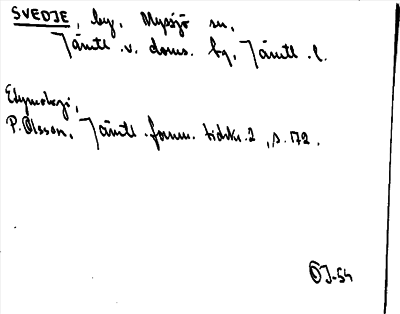 SVEDJE, by, Myssjö sn,
Jämtl. v. doms. by, Jämtl. l.
Etymologi,
P. Olsson, Jämtl. fornm. tidskr. 2, s. 172.
ÖJ-54